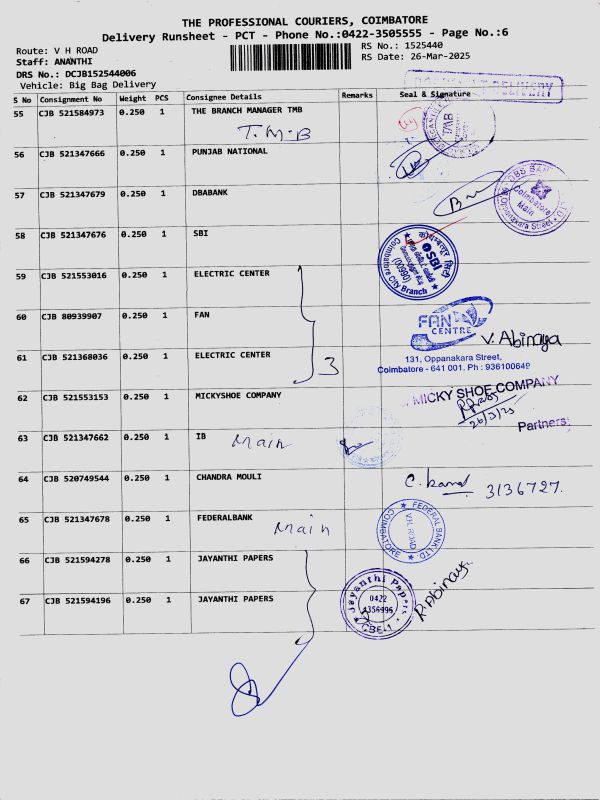 THE PROFESSIONAL COURIERS, COIMBATORE
Delivery Runsheet - PCT - Phone No.:0422-3505555 - Page No.:6
Route: V H ROAD
RS No.: 1525440
Staff: ANANTHI
RS Date: 26-Mar-2025
DRS No.: DCJB152544006
Vehicle: Big Bag Delivery
DELIVERY
S No Consignment No Weight PCS Consignee Details Remarks Seal & Signature
55 CJB 521584973 0.250 1 THE BRANCH MANAGER TMB
T.M.B
TMB
56 CJB 521347666 0.250 1 PUNJAB NATIONAL
57 CJB 521347679 0.250 1 DBABANK
DBS BANK
Coimbatore
Main
Oppanakara Street
58 CJB 521347676 0.250 1 SBI
SBI
(00990)
Coimbatore City Branch
59 CJB 521553016 0.250 1 ELECTRIC CENTER
60 CJB 80939907 0.250 1 FAN
FAN
CENTRE
V. Abinaya
61 CJB 521368036 0.250 1 ELECTRIC CENTER
3
131, Oppanakara Street,
Coimbatore - 641 001. Ph : 936100649
62 CJB 521553153 0.250 1 MICKYSHOE COMPANY
MICKY SHOE COMPANY
26/3/25
Partners
63 CJB 521347662 0.250 1 IB
Main
64 CJB 520749544 0.250 1 CHANDRA MOULI
3136727.
65 CJB 521347678 0.250 1 FEDERALBANK
Main
FEDERAL BANK LTD
V.H. ROAD
COIMBATORE
66 CJB 521594278 0.250 1 JAYANTHI PAPERS
67 CJB 521594196 0.250 1 JAYANTHI PAPERS
Jayanthi Papers
0422
4356996
CBE-1
R. Abinaya